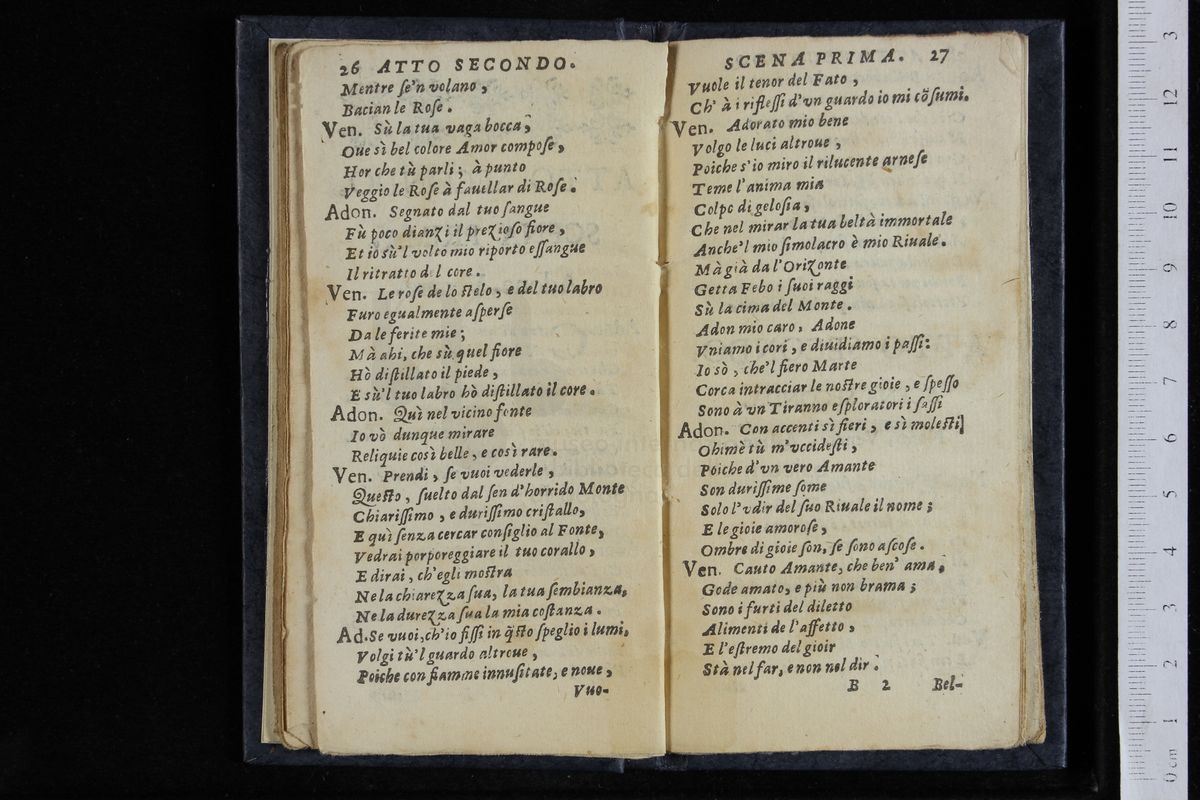 26 ATTO SECONDO.
Mentre ſe'n volano,
Bacian le Roſe.
Ven. Sù la tua vaga bocca,
Oue sì bel colore Amor compoſe,
Hor che tù parli; à punto
Veggio le Roſe à fauellar di Roſe.
Adon. Segnato dal tuo ſangue
Fù poco dianzi il prezioſo fiore,
Et io sù'l volto mio riporto eſſangue
Il ritratto del core.
Ven. Le roſe de lo ſtelo, e del tuo labro
Furo egualmente aſperſe
Da le ferite mie;
Mà ahi, che sù quel fiore
Hò diſtillato il piede,
E sù'l tuo labro hò diſtillato il core.
Adon. Quì nel vicino fonte
Io vò dunque mirare
Reliquie così belle, e così rare.
Ven. Prendi, ſe vuoi vederle,
Queſto, ſuelto dal ſen d'horrido Monte
Chiariſſimo, e duriſſimo criſtallo,
E quì ſenza cercar conſiglio al Fonte,
Vedrai porporeggiare il tuo corallo,
E dirai, ch'egli moſtra
Ne la chiarezza ſua, la tua ſembianza,
Ne la durezza ſua la mia coſtanza.
Ad. Se vuoi, ch'io fiſſi in q̃ſto ſpeglio i lumi,
Volgi tù'l guardo altroue,
Poiche con fiamme innuſitate, e noue,
Vuo-
SCENA PRIMA. 27
Vuole il tenor del Fato,
Ch' à i rifleſſi d'vn guardo io mi cõſumi.
Ven. Adorato mio bene
Volgo le luci altroue,
Poiche s'io miro il rilucente arneſe
Teme l'anima mia
Colpo di geloſia,
Che nel mirar la tua beltà immortale
Anche'l mio ſimolacro è mio Riuale.
Mà già da l'Orizonte
Getta Febo i ſuoi raggi
Sù la cima del Monte.
Adon mio caro, Adone
Vniamo i cori, e diuidiamo i paſſi:
Io sò, che'l fiero Marte
Cerca intracciar le noſtre gioie, e ſpeſſo
Sono à vn Tiranno eſploratori i ſaſſi
Adon. Con accenti sì fieri, e sì moleſti
Ohimè tù m'vccideſti,
Poiche d'vn vero Amante
Son duriſſime ſome
Solo l'vdir del ſuo Riuale il nome;
E le gioie amoroſe,
Ombre di gioie ſon, ſe ſono aſcoſe.
Ven. Cauto Amante, che ben' ama,
Gode amato, e più non brama;
Sono i furti del diletto
Alimenti de l'affetto,
E l'eſtremo del gioir
Stà nel far, e non nel dir.
B 2 Bel-